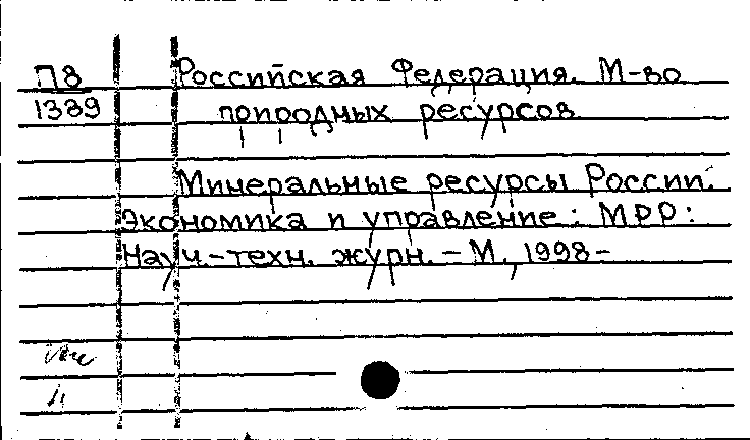 П8 Российская Федерация. М-во
1389 природных ресурсов
Минеральные ресурсы России.
Экономика и управление: МРР:
Науч.-техн. журн. – М., 1998-